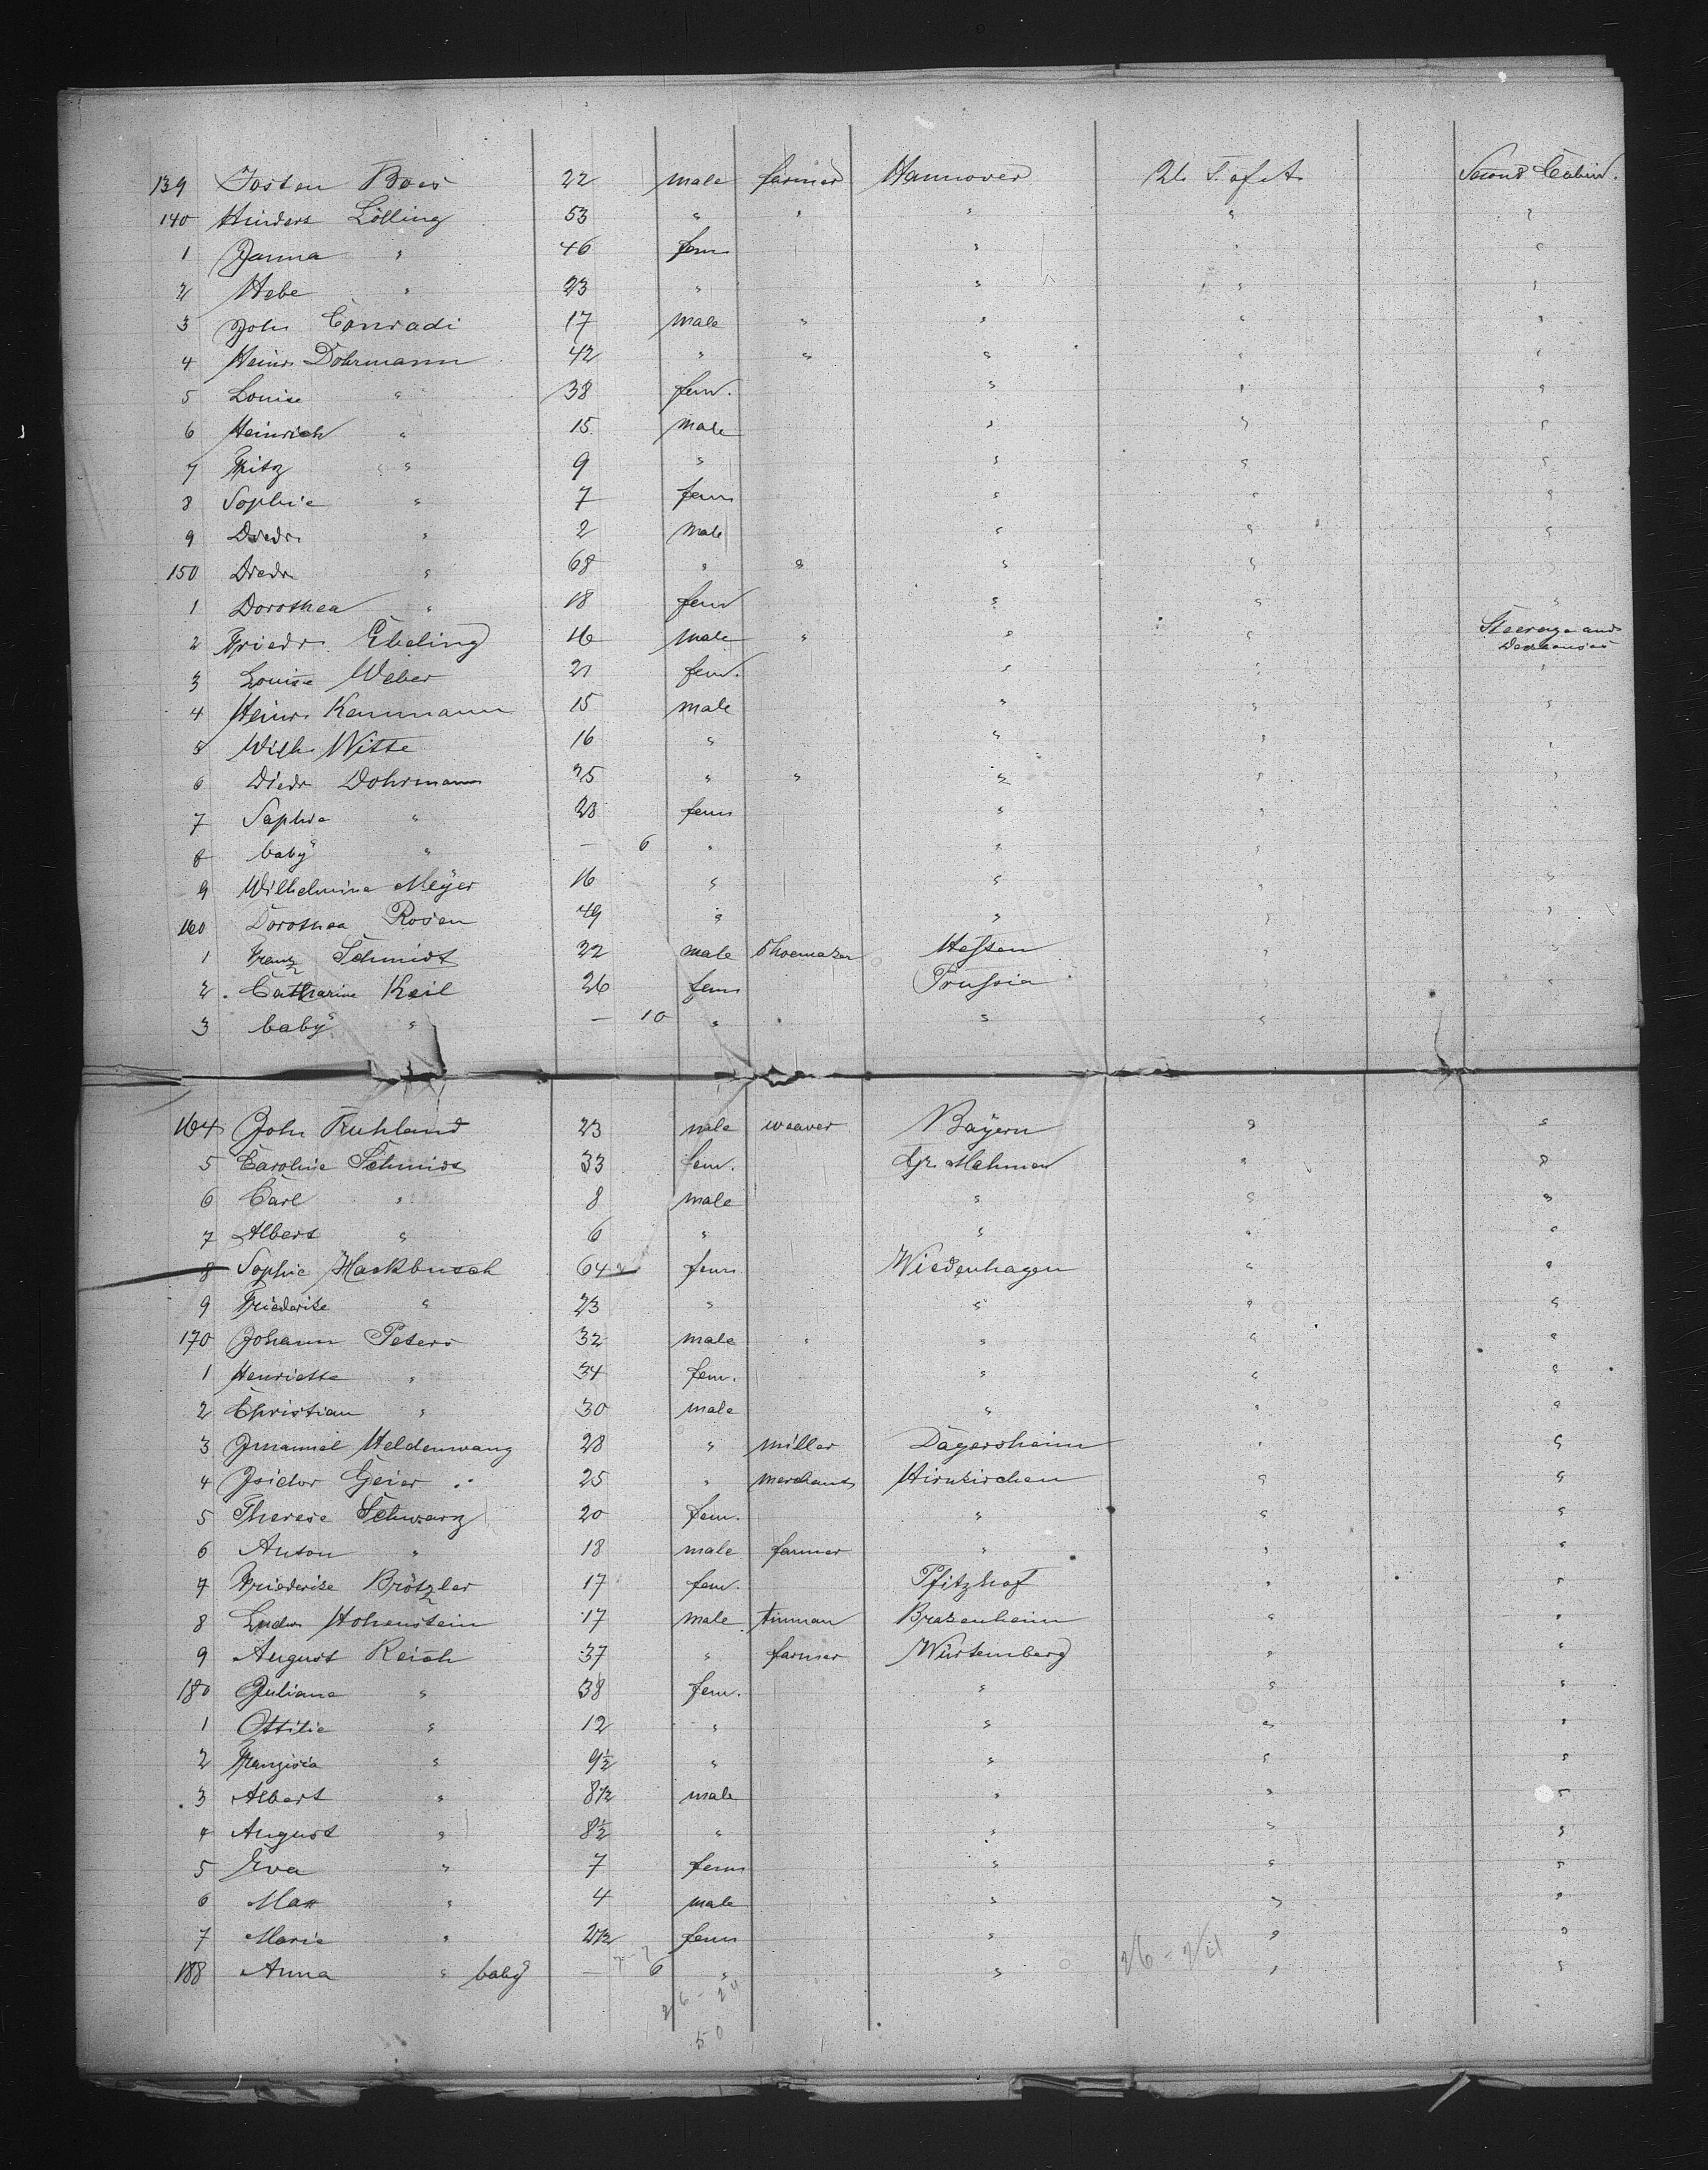 139 Josten Boes 22 male farmer Hannover U. S. of A. Second Cabin.
140 Hinders Lölling 53 " " " " "
1 Janna " 46 fem " " "
2 Hebe " 23 " " " "
3 John Conradi 17 male " " " "
4 Heinr. Dohrmann 42 " " " " "
5 Louise " 38 fem. " " "
6 Heinrich " 15 male " " "
7 Fritz " 9 " " " "
8 Sophie " 7 fem " " "
9 Diedr. " 2 male " " "
150 Diedr " 68 " " " " "
1 Dorothea " 18 fem " " "
2 Friedr. Ebeling 16 male " " " Steerage and
3 Louise Weber 21 fem. " " "
4 Heinr. Kemmann 15 male " " "
5 Wilh. Witte 16 " " " "
6 Diedr Dohrmann 25 " " " " "
7 Sophie " 28 fem " " "
8 baby " — 6 " " " "
9 Wilhelmine Meyer 16 " " " "
160 Dorothea Rosen 49 " " " "
1 Franz Schmidt 22 male shoemaker Hessen " "
2 Catharine Keil 26 fem Prussia " "
3 baby " — 10 " " "
164 John Ruhland 23 male weaver Bayern " "
5 Caroline Schmidt 33 fem. Gr. Mehmen " "
6 Carl " 8 male " " "
7 Albert " 6 " " " "
8 Sophie Hackbusch 64 fem Wiedenhagen " "
9 Friederike " 23 " " " "
170 Johann Peters 32 male " " " "
1 Henriette " 34 fem. " " "
2 Christian " 30 male " " "
3 Imanuel Heldenwang 28 " miller Dagersheim " "
4 Isidor Geier 25 " merchant Hirnkirchen " "
5 Therese Schwarz 20 fem. " " "
6 Anton " 18 male farmer " " "
7 Friederike Brötzler 17 fem. Pfitzhof " "
8 Ludw. Hohenstein 17 male tinman Brakenheim " "
9 August Reich 37 " farmer Würtemberg " "
180 Juliane " 38 fem. " " "
1 Ottilie " 12 " " " "
2 Franzisia " 9½ " " " "
3 Albert " 8½ male " " "
4 August " 8½ " " " "
5 Eva " 7 fem " " "
6 Max " 4 male " " "
7 Marie " 2½ fem " " "
188 Anna " baby — 6 " " " "
26 - 24
26 - 24
50